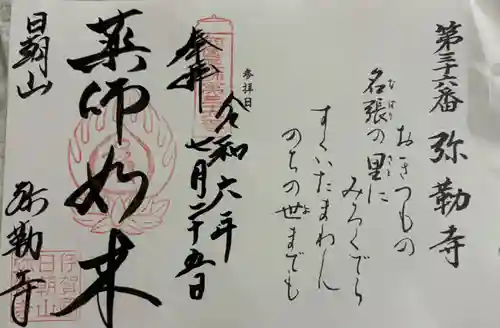 第三十六番 弥勒寺
おきつもの
名張の里に
なばり
さと
みろくでら
すくいたまわん
のちの世までも
よ
参拝日
令和六年
七月二十五日
奉拝
薬師如来
日朝山
弥勒寺
伊賀国
日朝山